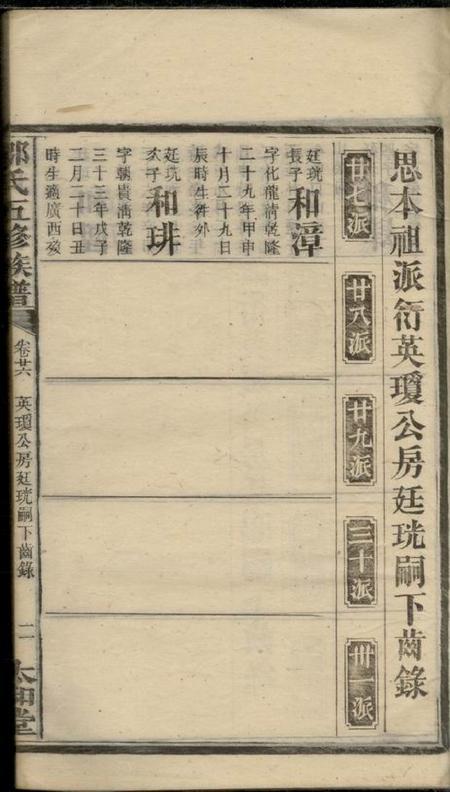 思本祖派衍英瓊公房廷珖嗣下齒錄
廿七派
廿八派
廿九派
三十派
卅一派
廷珖長子 和漳
字化龍清乾隆
二十九年甲申
十月二十九日
辰時生往外
廷珖次子 和琲
字朝貴清乾隆
三十三年戊子
二月二十日丑
時生適廣西歿
氏五修族譜
卷廿六
英瓊公房廷珖嗣下齒錄
二
太和堂